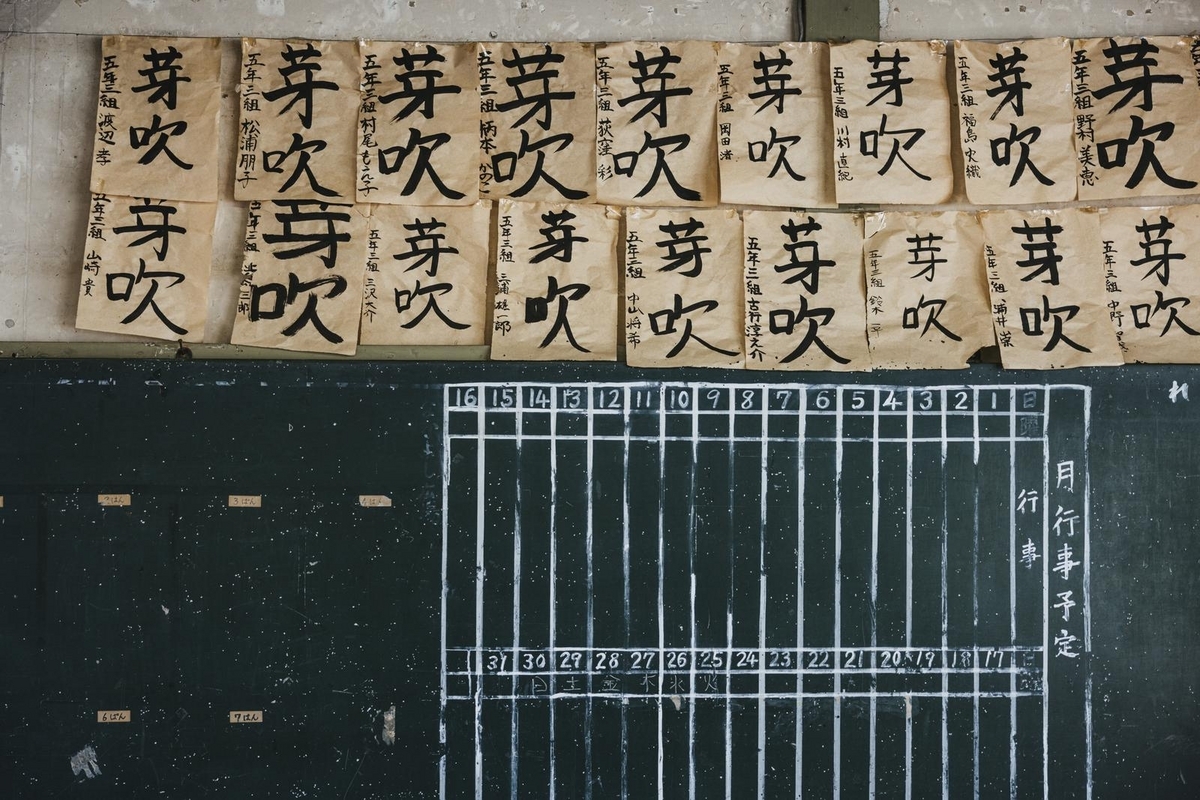 芽吹 五年三組 渡辺 孝
芽吹 五年三組 松浦朋子
芽吹 五年三組 村尾もとえ子
芽吹 五年三組 柄本 かのこ
芽吹 五年三組 荻窪 彩
芽吹 五年三組 岡田 渚
芽吹 五年三組 川村 直純
芽吹 五年三組 福島
芽吹 五年三組 野村 美恵
芽吹 五年三組 山崎 貴
芽吹 五年三組
芽吹 五年三組 三沢大介
芽吹 五年三組 三浦 雄一郎
芽吹 五年三組 中山 将希
芽吹 五年三組 古谷淳之介
芽吹 五年三組 鈴木 一平
芽吹 五年三組 涌井 栄
芽吹 五年三組 中野
16 15 14 13 12 11 10 9 8 7 6 5 4 3 2 1 日
曜
行事
月行事予定
31 30 29 28 27 26 25 24 23 22 21 20 19 18 17 日
日 土 金 木 水 火
2はん
3はん
6はん
7はん